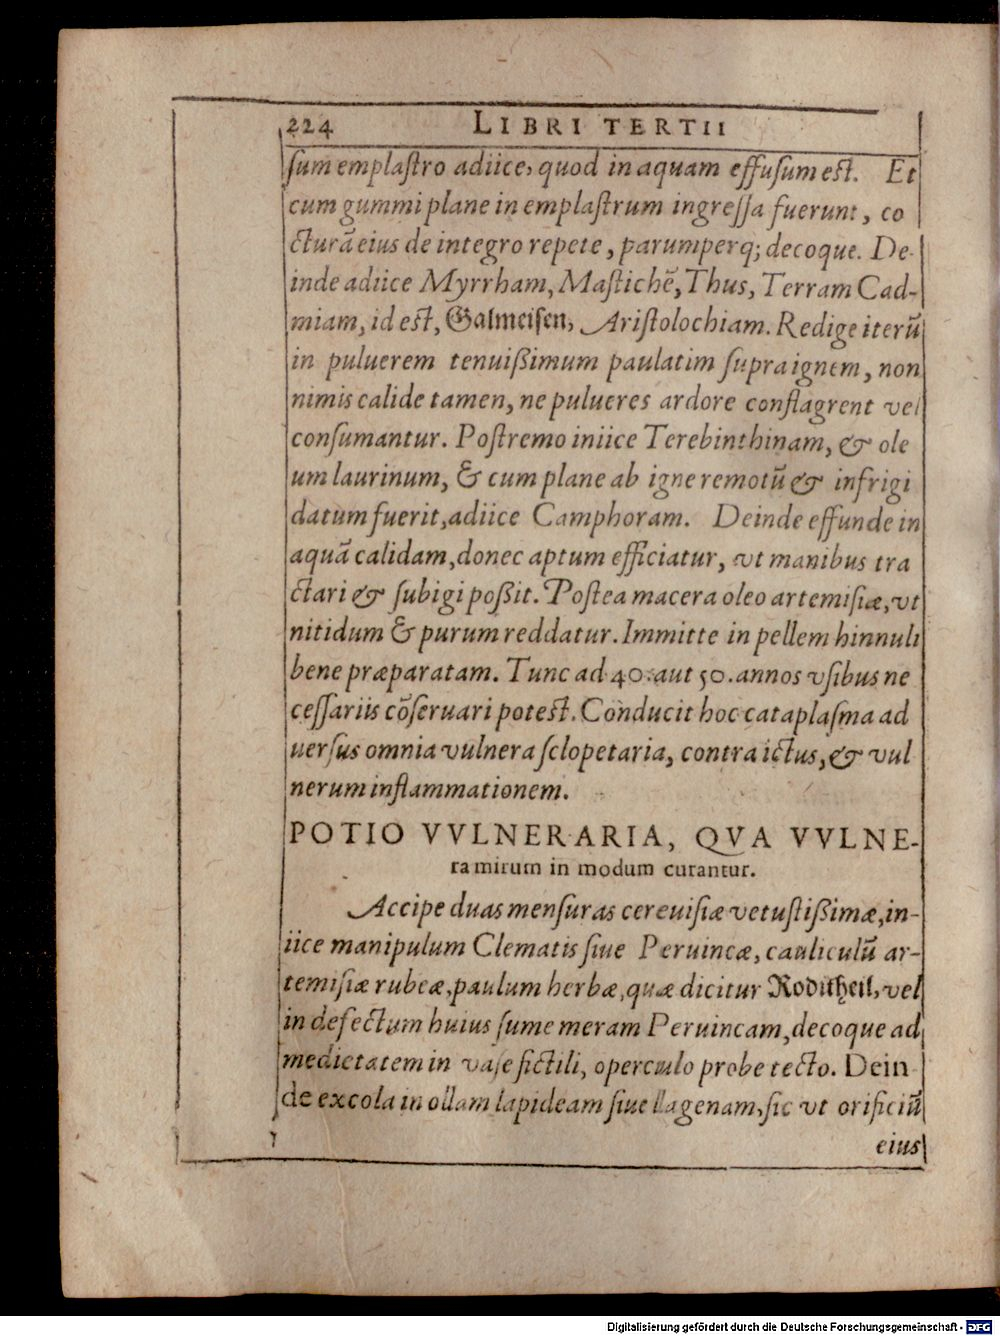 224 LIBRI TERTII
ſum emplaſtro adiice, quod in aquam effuſum eſt. Et
cum gummi plane in emplaſtrum ingreſſa fuerunt, co
cturā eius de integro repete, parumperq; decoque. De-
inde adiice Myrrham, Maſtichē, Thus, Terram Cad-
miam, id eſt, Galmeiſen, Ariſtolochiam. Redige iterū
in puluerem tenuißimum paulatim ſupra ignem, non
nimis calide tamen, ne pulueres ardore conflagrent vel
conſumantur. Poſtremo iniice Terebinthinam, & ole
um laurinum, & cum plane ab igne remotū & infrigi
datum fuerit, adiice Camphoram. Deinde effunde in
aquā calidam, donec aptum efficiatur, vt manibus tra
ctari & ſubigi poßit. Poſtea macera oleo artemiſiæ, vt
nitidum & purum reddatur. Immitte in pellem hinnuli
bene præparatam. Tunc ad 40. aut 50. annos vſibus ne
ceſſariis cōſeruari poteſt. Conducit hoc cataplaſma ad
uerſus omnia vulnera ſclopetaria, contra ictus, & vul
nerum inflammationem.
POTIO VVLNERARIA, QVA VVLNE-
ra mirum in modum curantur.
Accipe duas menſuras cereuiſiæ vetuſtißimæ, in-
iice manipulum Clematis ſiue Peruincæ, cauliculū ar-
temiſiæ rubeæ, paulum herbæ, quæ dicitur Roditheil, vel
in defectum huius ſume meram Peruincam, decoque ad
medietatem in vaſe fictili, operculo probe tecto. Dein
de excola in ollam lapideam ſiue llagenam, ſic vt orificiū
eius
Digitalisierung gefördert durch die Deutsche Forschungsgemeinschaft - DFG